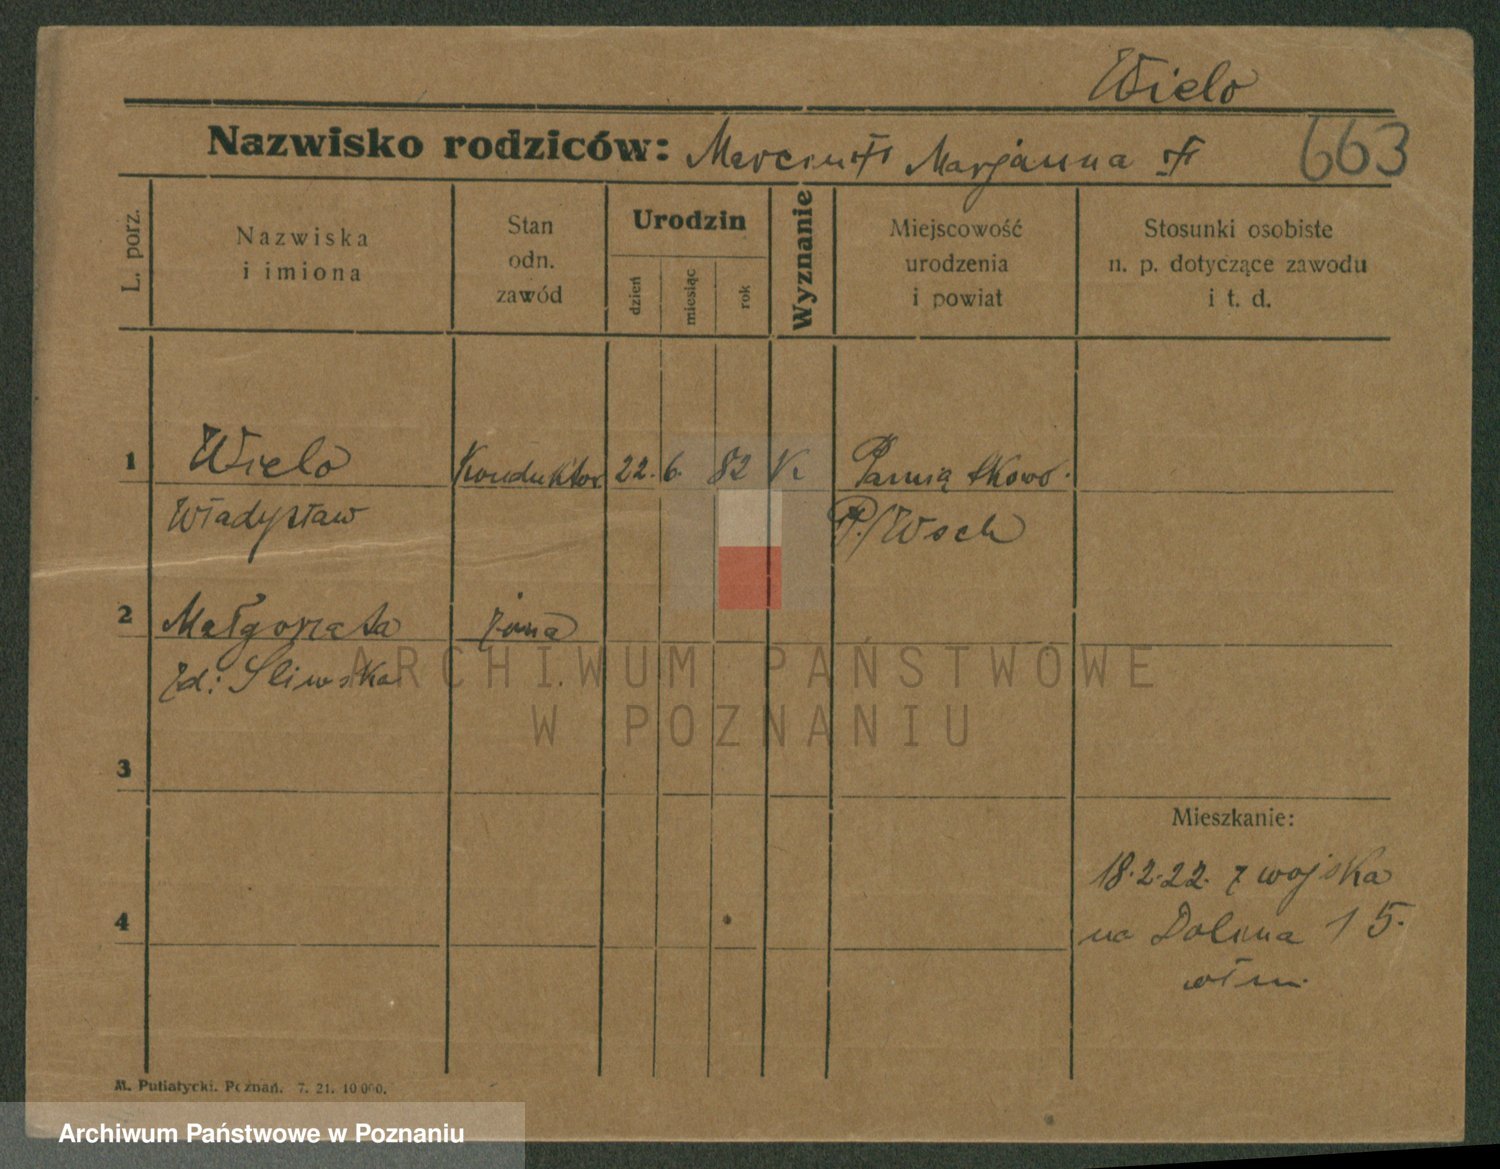 Wielo
Nazwisko rodziców: Marcin † Marjanna †
663
L. porz.
Nazwiska
i imiona
Stan
odn.
zawód
Urodzin
dzień
miesiąc
rok
Wyznanie
Miejscowość
urodzenia
i powiat
Stosunki osobiste
n. p. dotyczące zawodu
i t. d.
1 Wielo Konduktor 22. 6. 82 K. Pamiątkowo.
Władysław P./Wsch
2 Małgorzata żona
zd: Sliwska
ARCHIWUM PAŃSTWOWE
W POZNANIU
3
Mieszkanie:
18.2.22. z wojska
4
na Dolina 15.
włm.
M. Putiatycki. Poznań. 7. 21. 10 000.
Archiwum Państwowe w Poznaniu